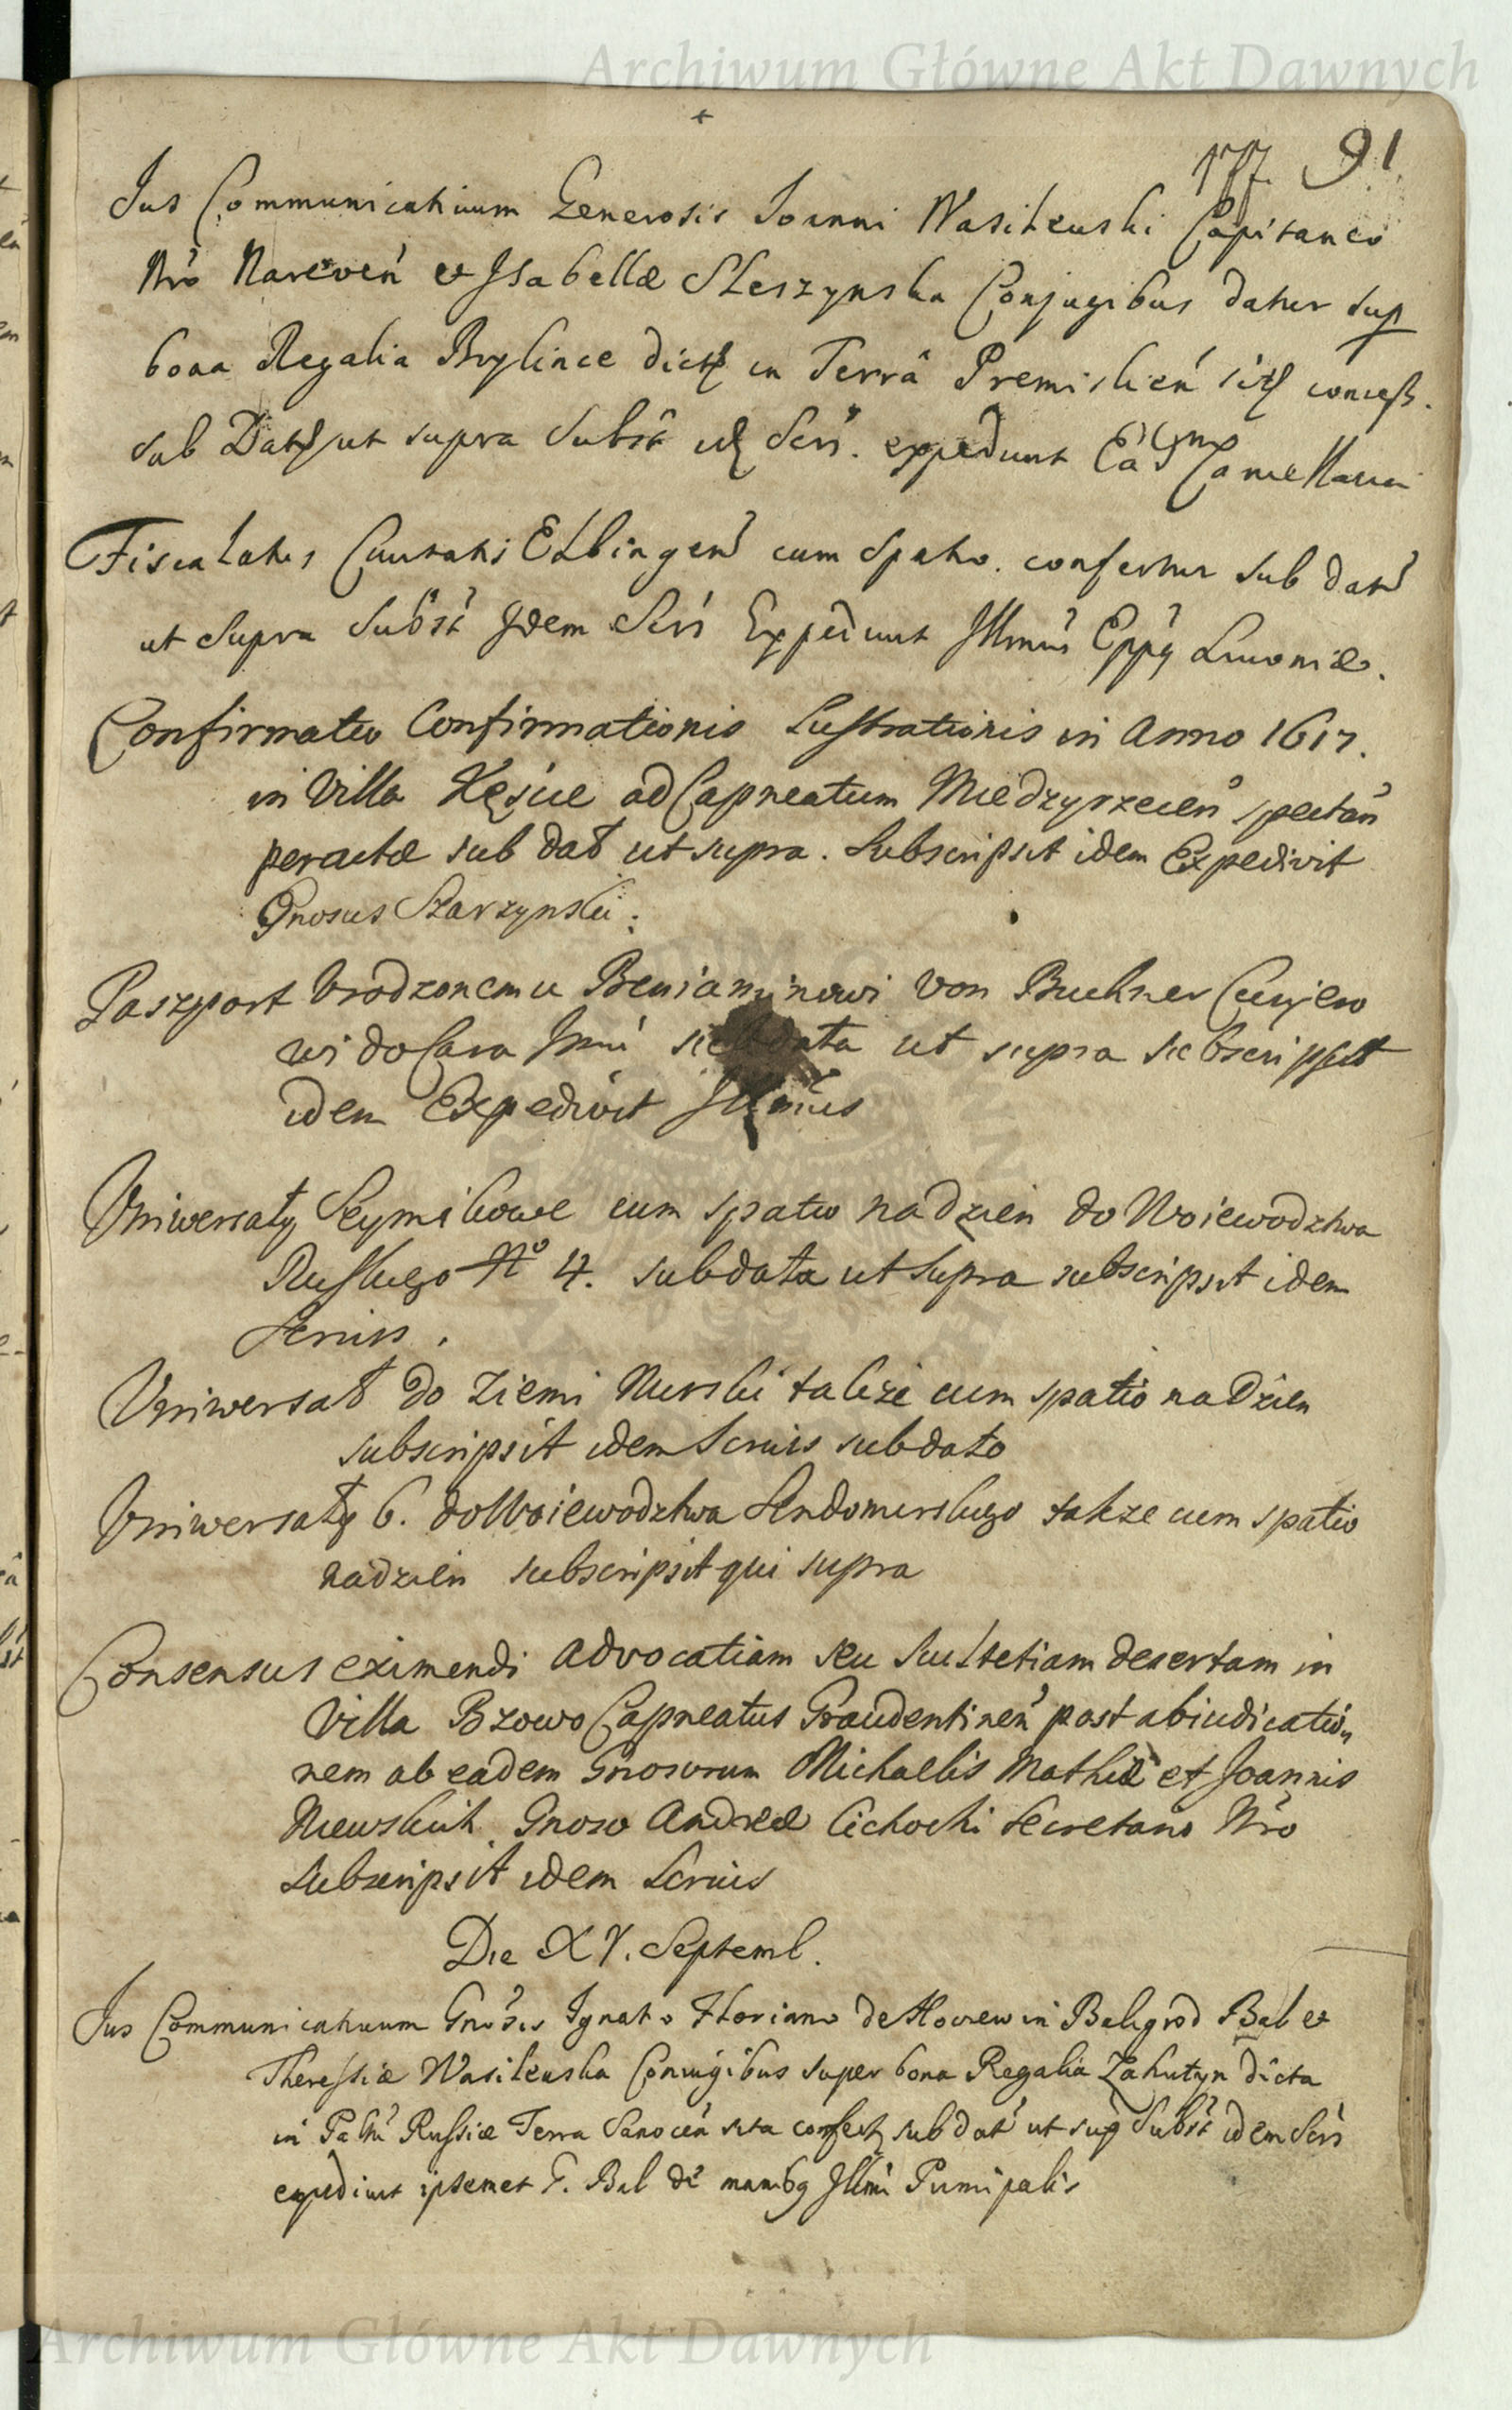 Archiwum Główne Akt Dawnych
177 91
Jus Communicativum Generosis Joanni Wasilewski Capitaneo
Nro Nareven et Isabellæ Sleszynska Conjugibus datur sup
bona Regalia Brylince dict in Terrâ Premislien sit concess.
sub Dat ut supra Subst id Sers. expediunt Ead Cancellaria
Fiscalatus Civitatis Elbingen cum Spatio. confertur sub dat
ut supra Subst Idem Sers Expediunt Illmus Eppus Livoniæ.
Confirmatio Confirmationis Lustrationis in Anno 1617.
in Villa Kęsice ad Capneatum Miedzyrzecen spectan
peractæ sub dat ut supra. Subscripsit idem Expedivit
Gnosus Starzynski.
Paszport Vrodzonemu Beniaminowi Von Buchner
do Cara Jmci sub data ut supra subscripsit
idem Expedivit Illmus
Vniwersały Seymikowe cum spatio na dzien do Woiewodztwa
Ruskiego No 4. sub data ut supra subscripsit idem
Serniss.
Vniwersał do Ziemi Nurski takze cum spatio na dzien
subscripsit idem Serniss sub dato
Vniwersały 6. do Woiewodztwa Sendomirskiego takze cum spatio
na dzien subscripsit qui supra
Consensus eximendi advocatiam seu Scultetiam desertam in
Villa Bzowo Capneatus Graudentinen post abiudicatio
nem ab eadem Gnosorum Michaelis Mathiæ et Joannis
Niewskich Gnoso Andreæ Cichocki Secretario Nro
Subscripsit idem Serniss
Die XV. Septemb.
Jus Communicativum Gnosis Ignatio Floriano de Hoczew in Baligrod Bal et
Theressiæ Wasilewska Coniugibus super bona Regalia Zahutyn dicta
in Paltu Russiæ Terra Sanocen sita confert sub dat ut sup Subst idem Sers
expediunt ipsemet G. Bal de manibus Illmi Principalis
Archiwum Główne Akt Dawnych